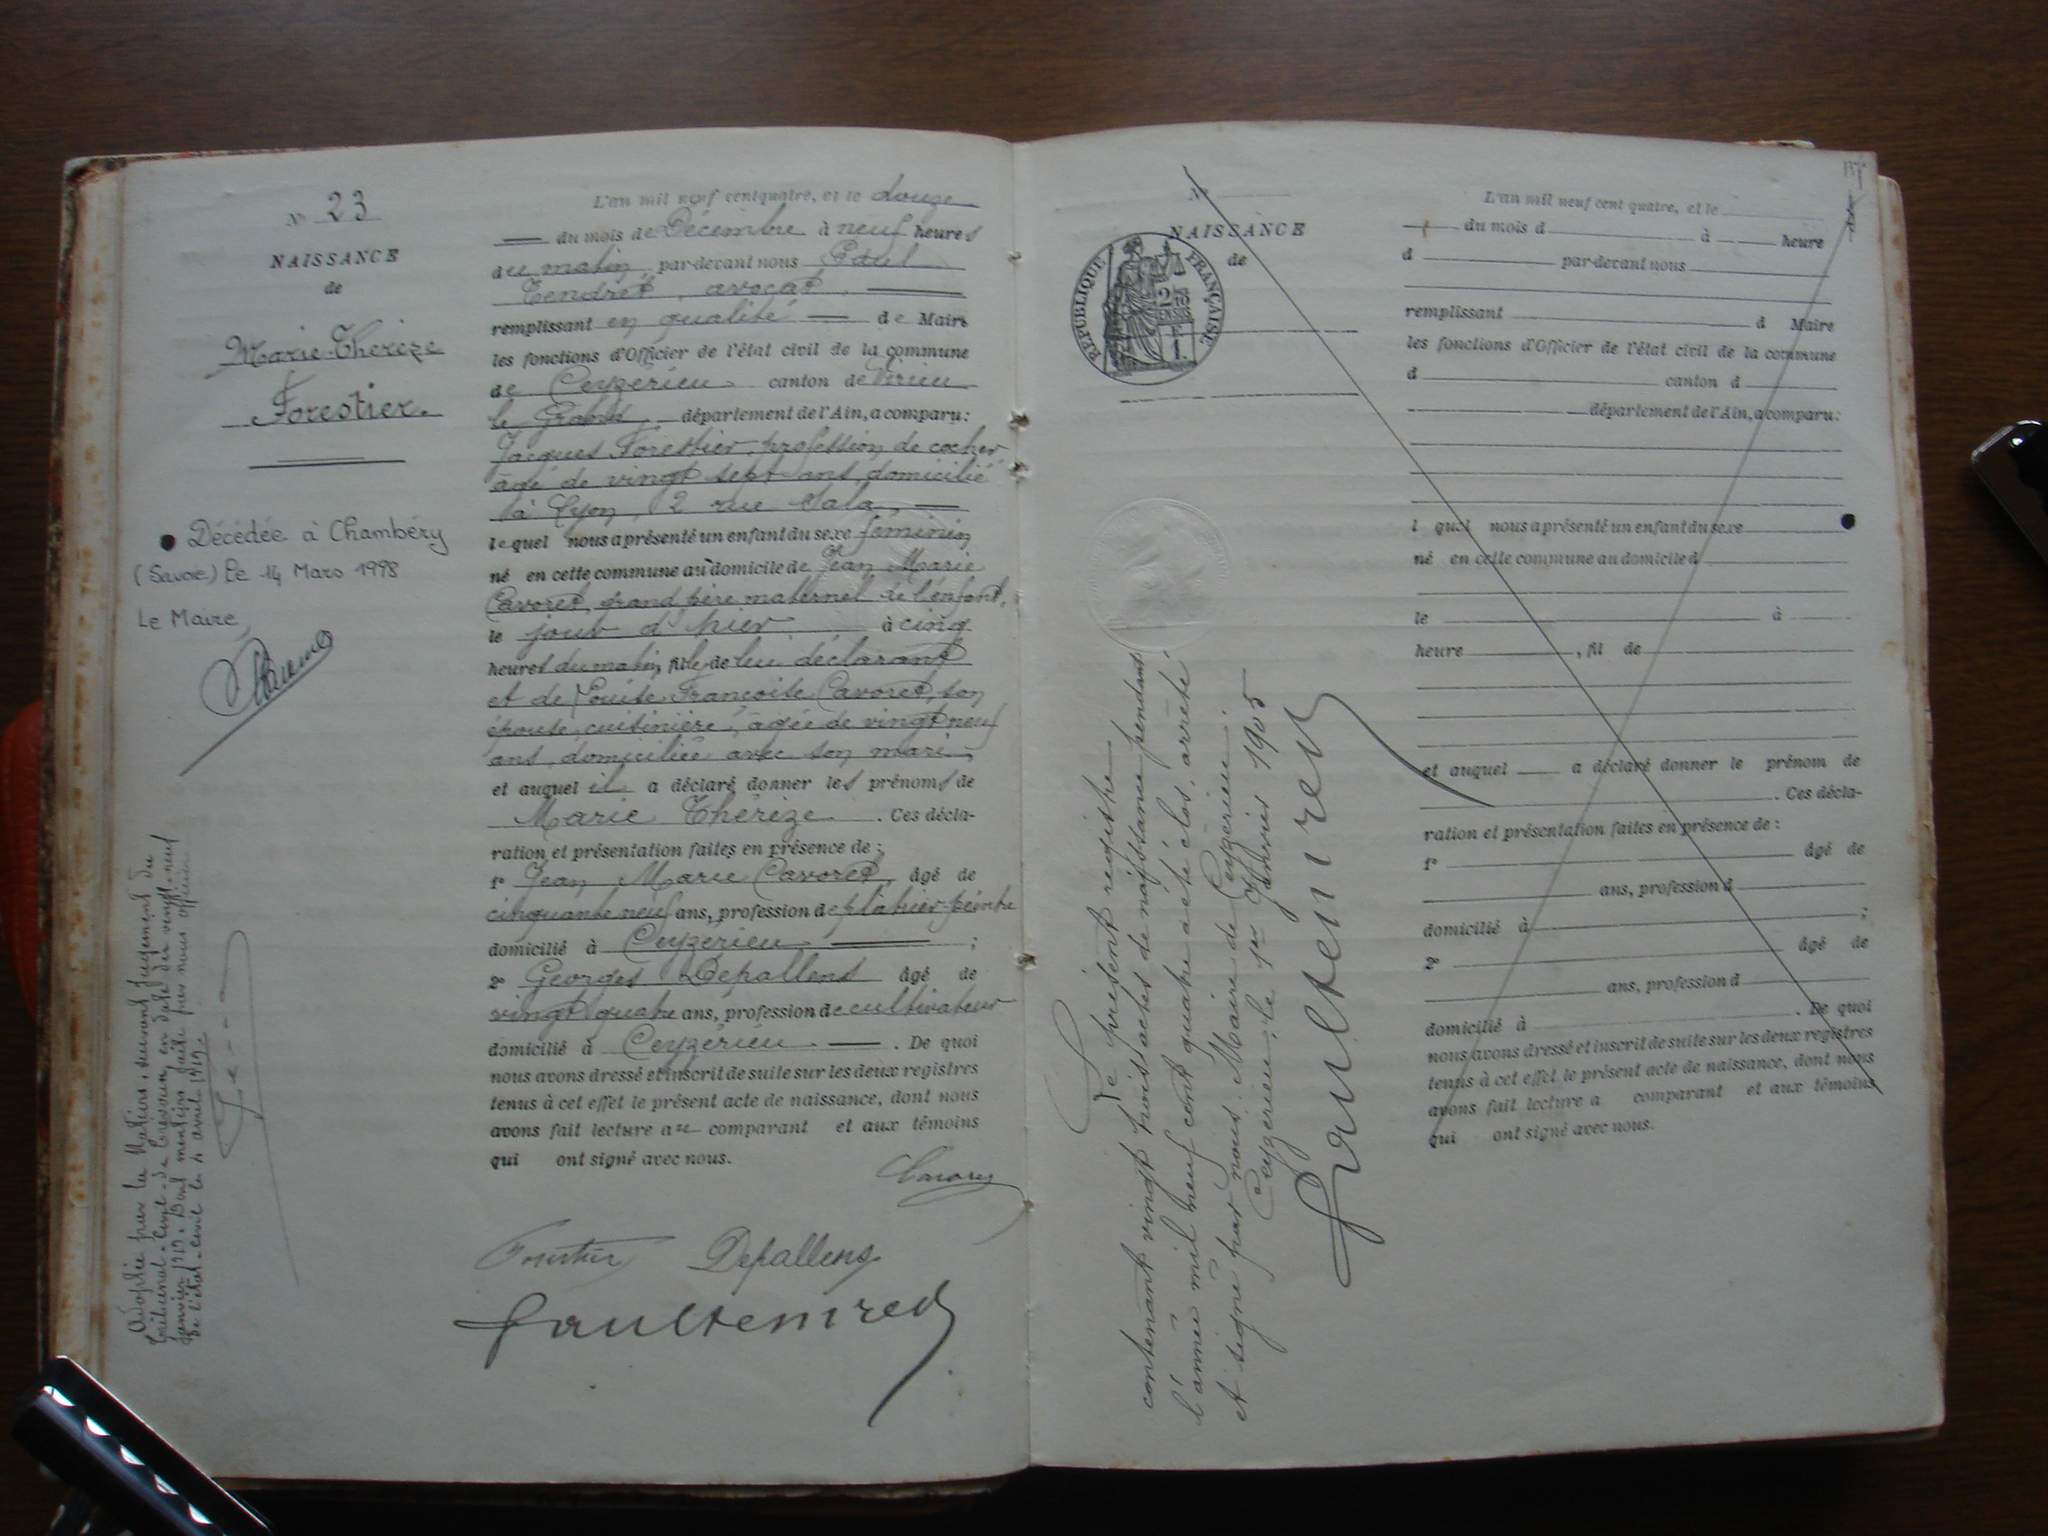 N° 23
NAISSANCE
de
Marie-Thérèze
Forestier.
Décédée à Chambéry
(Savoie) Le 14 Mars 1998
Le Maire,
Adoptée par la Nation, suivant jugement du
tribunal civil de en date du vingt-neuf
janvier 1919. Dont mention faite par nous officier
de l'état-civil le 4 avril 1919.
L'an mil neuf cent quatre, et le douze
— du mois de Décembre à neuf heures
du matin par-devant nous Paul
Tendret, avocat, —
remplissant en qualité — de Maire
les fonctions d'Officier de l'état civil de la commune
de Ceyzérieu canton de Virieu
le Grand département de l'Ain, a comparu:
Jacques Forestier, profession de cocher
âgé de vingt sept ans, domicilié
à Lyon, 2 rue Sala, —
lequel nous a présenté un enfant du sexe féminin
né en cette commune au domicile de Jean Marie
Cavoret, grand père maternel de l'enfant,
le jour d'hier à cinq
heures du matin, fille de lui déclarant
et de Louise Françoise Cavoret, son
épouse, cuisinière, âgée de vingt neuf
ans, domiciliée avec son mari,
et auquel il a déclaré donner les prénoms de
Marie Thérèze. Ces décla-
ration et présentation faites en présence de:
1° Jean Marie Cavoret, âgé de
cinquante neuf ans, profession de plâtrier-peintre
domicilié à Ceyzérieu — ;
2° Georges Depallens âgé de
vingt quatre ans, profession de cultivateur
domicilié à Ceyzérieu. — . De quoi
nous avons dressé et inscrit de suite sur les deux registres
tenus à cet effet le présent acte de naissance, dont nous
avons fait lecture au comparant et aux témoins
qui ont signé avec nous.
Cavoret
Forestier Depallens
Paul Tendret
N°
NAISSANCE
de
RÉPUBLIQUE FRANÇAISE
2/10 EN SUS
1 F.
Le présent registre
contenant vingt trois actes de naissance pendant
l'année mil neuf cent quatre a été clos, arrêté
et signé par nous, Maire de Ceyzérieu.
Ceyzérieu, le 1er Janvier 1905
Paul Tendret
L'an mil neuf cent quatre, et le
du mois d à heure
d par-devant nous
remplissant d Maire
les fonctions d'Officier de l'état civil de la commune
d canton d
département de l'Ain, a comparu:
l quel nous a présenté un enfant du sexe
né en cette commune au domicile d
le à
heure , fil de
et auquel a déclaré donner le prénom de
. Ces décla-
ration et présentation faites en présence de:
1° âgé de
ans, profession d
domicilié à ;
2° âgé de
ans, profession d
domicilié à . De quoi
nous avons dressé et inscrit de suite sur les deux registres
tenus à cet effet le présent acte de naissance, dont nous
avons fait lecture a comparant et aux témoins
qui ont signé avec nous.